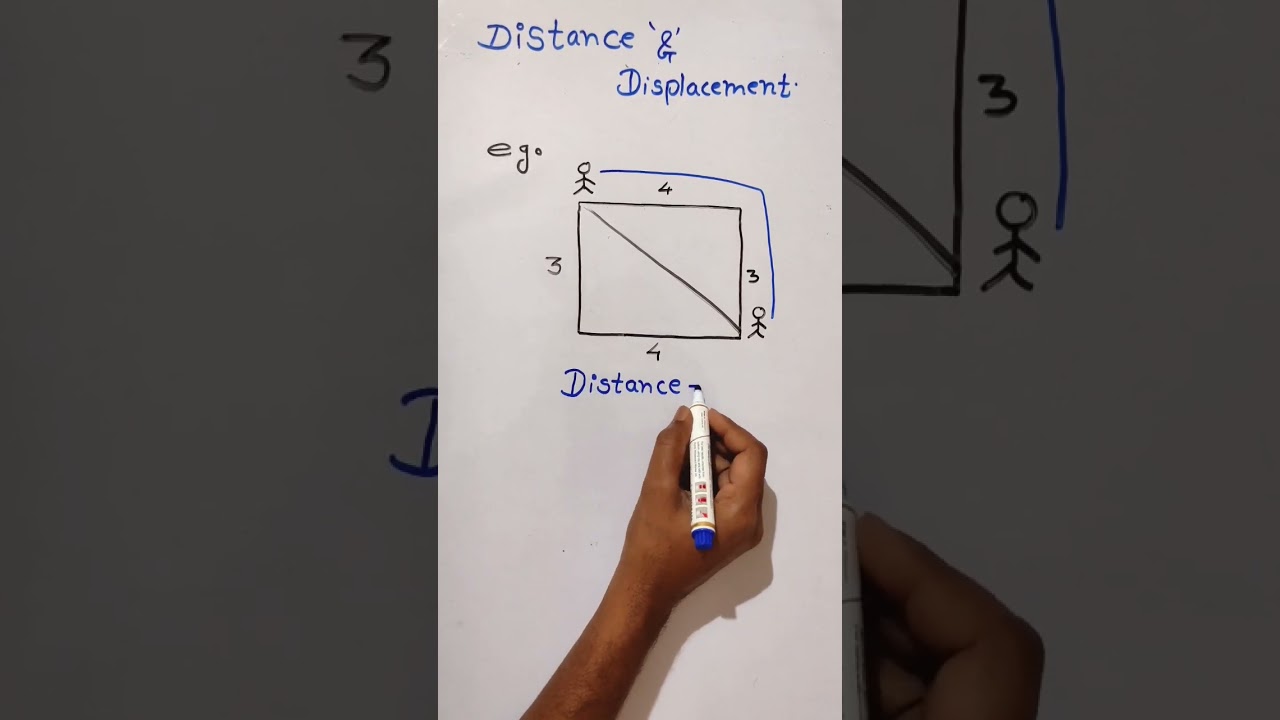 Distance '&'
Displacement.
eg.
4
3
3
4
Distance -